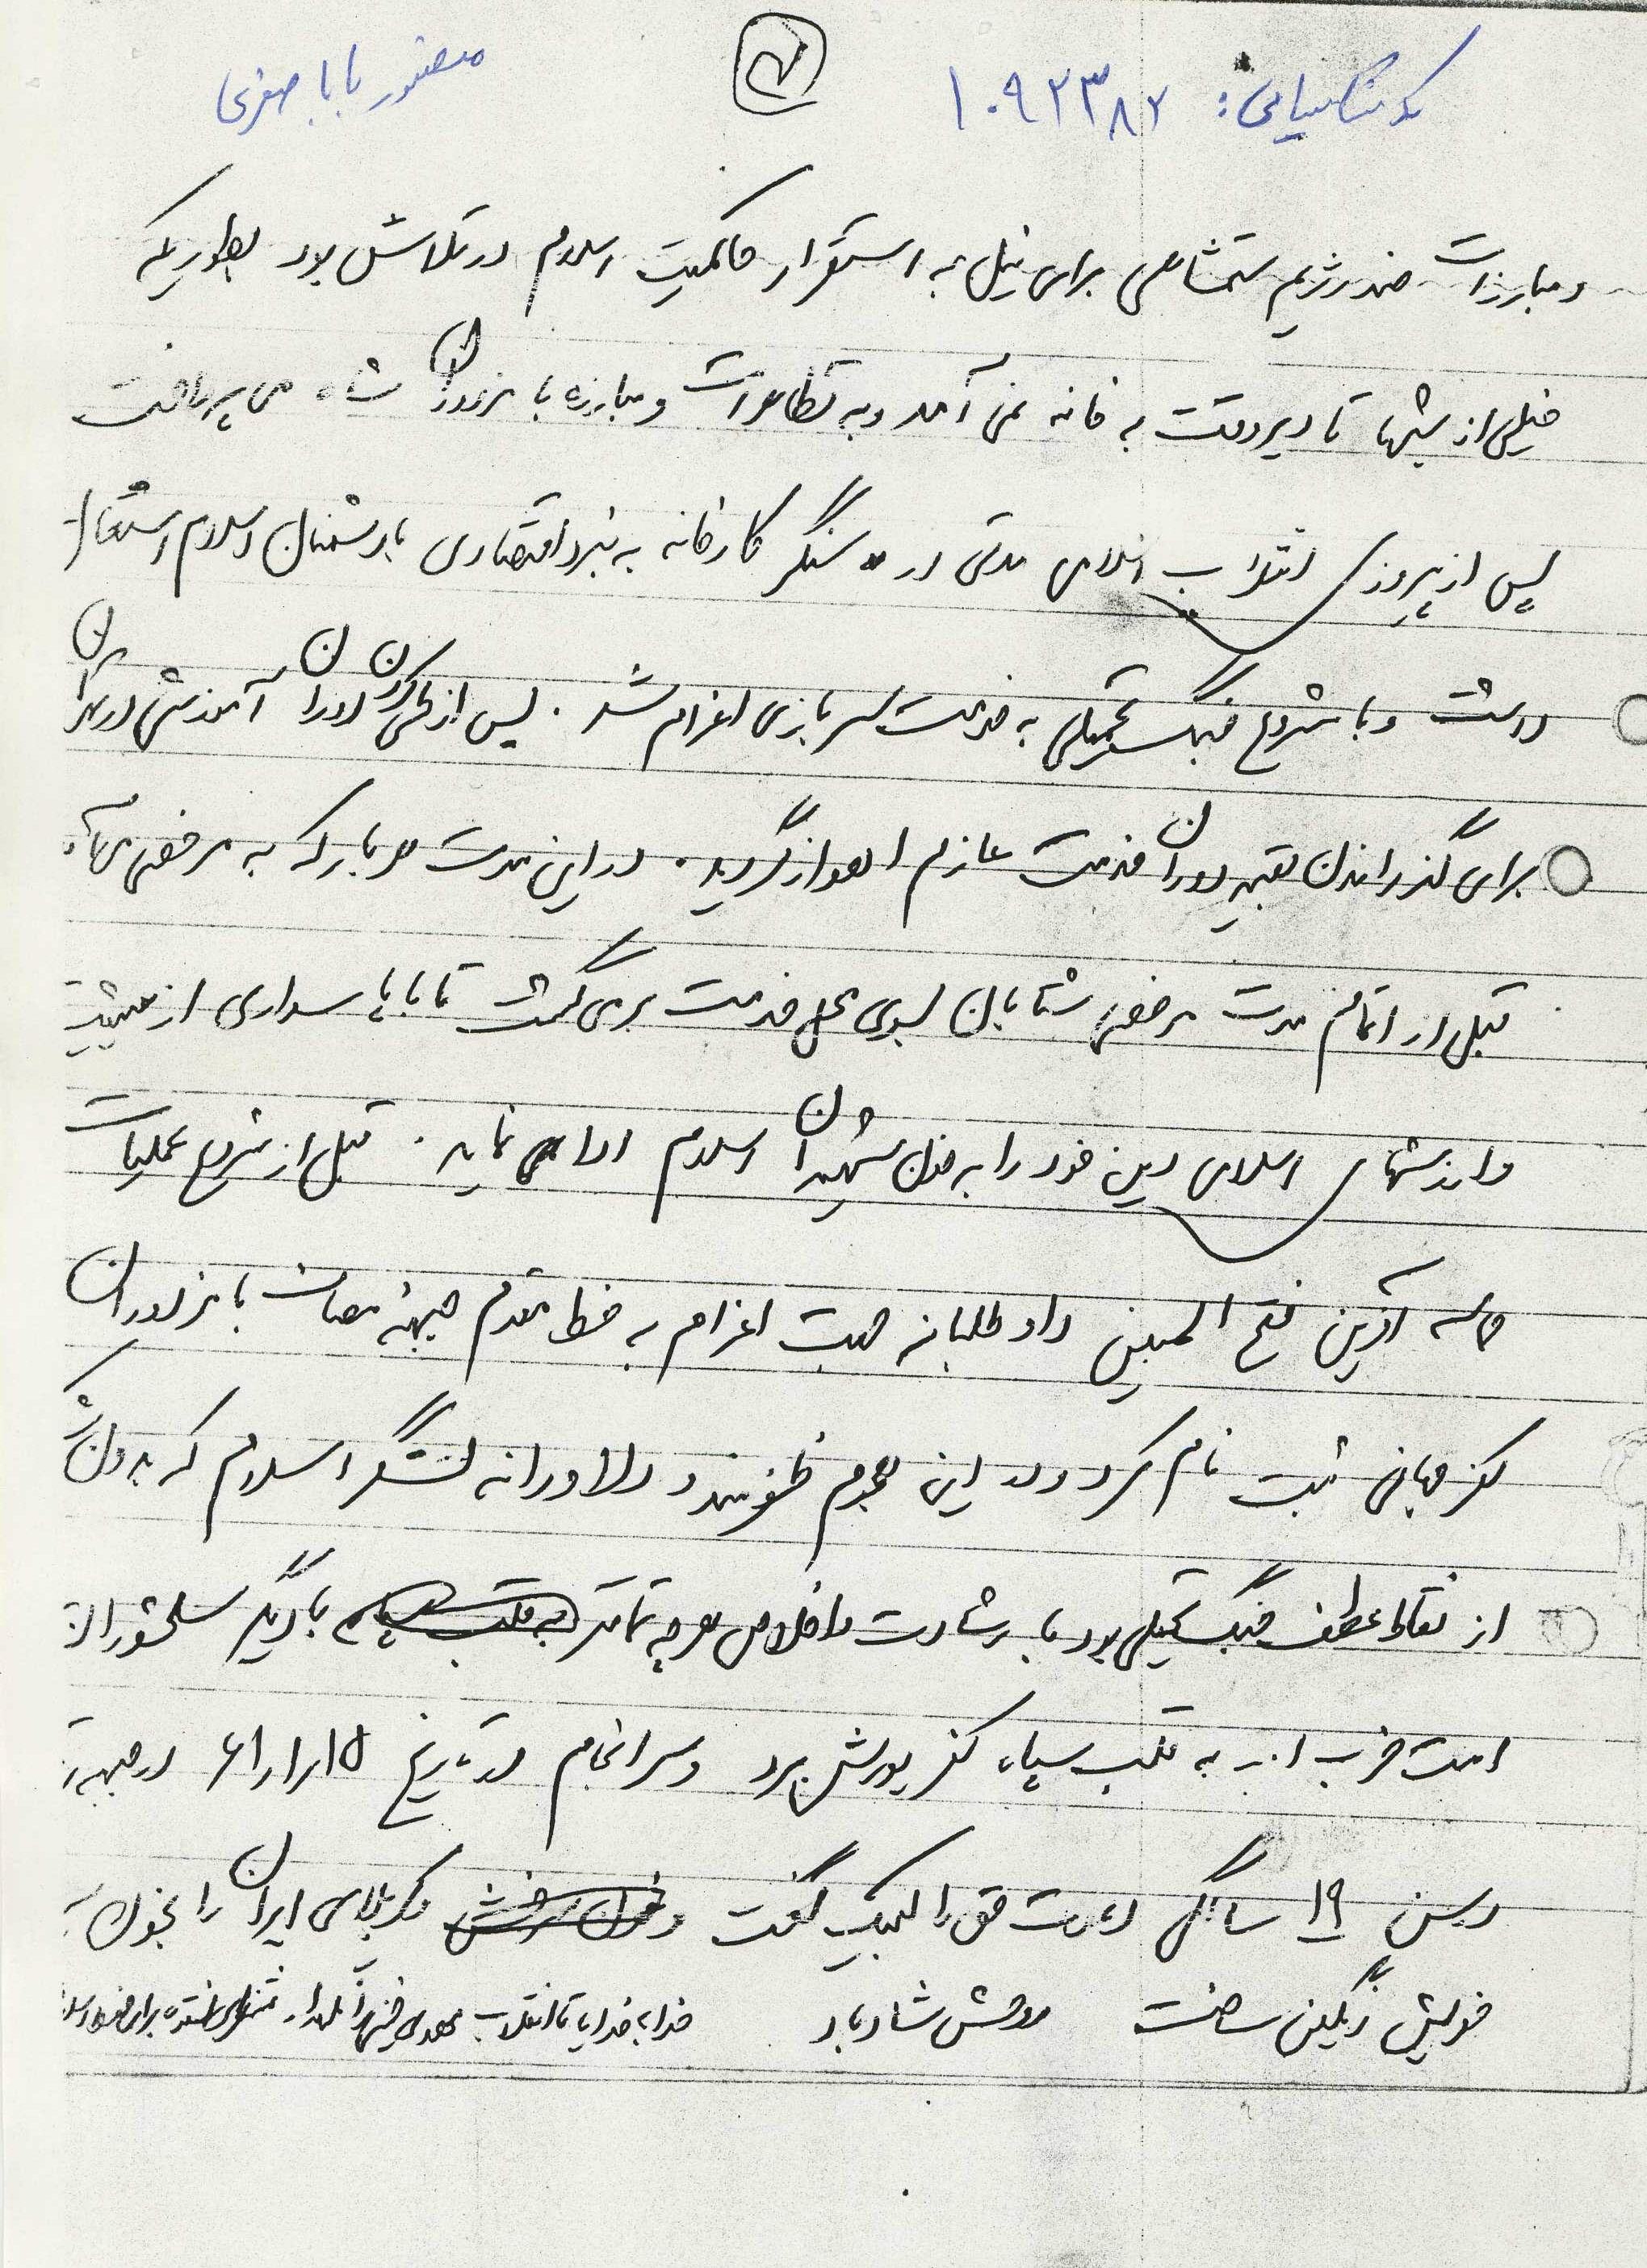 کد شناسایی: ۱۰۹۲۳۸۲
۲
منصور بابا صفری
و مبارزات ضد رژیم ستمشاهی برای نیل به استقرار حاکمیت اسلام در تلاش بود بطوریکه
خیلی از شبها تا دیر وقت به خانه نمی آمد و به تظاهرات و مبارزه با مزدوران شاه می پرداخت
پس از پیروزی انقلاب اسلامی مدتی در سنگر کارخانه به نبرد اقتصادی با دشمنان اسلام اشتغال
داشت و با شروع جنگ تحمیلی به خدمت سربازی اعزام شد . پس از طی کردن دوران آموزشی در تهران
برای گذراندن بقیه دوران خدمت عازم اهواز گردید . در این مدت هر بار که به مرخصی می آمد
قبل از اتمام مدت مرخصی شتابان بسوی محل خدمت برمی گشت تا با پاسداری از حیثیت
و ارزشهای اسلامی دین خود را به خون شهیدان اسلام ادا نماید . قبل از شروع عملیات
حماسه آفرین فتح المبین داوطلبانه جهت اعزام به خط مقدم جبهه مصاف با مزدوران
کفر جهانی ثبت نام کرد و در این هجوم ظفرمند و دلاورانه لشگر اسلام که بدون شک
از نقاط عطف جنگ تحمیلی بود با رشادت و اخلاص هر چه تمامتر با دیگر سلحشوران
امت حزب ا... به قلب سپاه کفر یورش برد و سرانجام در تاریخ ۱۵/۱/۶۱ در جبهه
در سن ۱۹ سالگی دعوت حق را لبیک گفت و کربلای ایران را بخون
خویش رنگین ساخت روحش شاد باد خدایا خدایا تا انقلاب مهدی خمینی را نگهدار